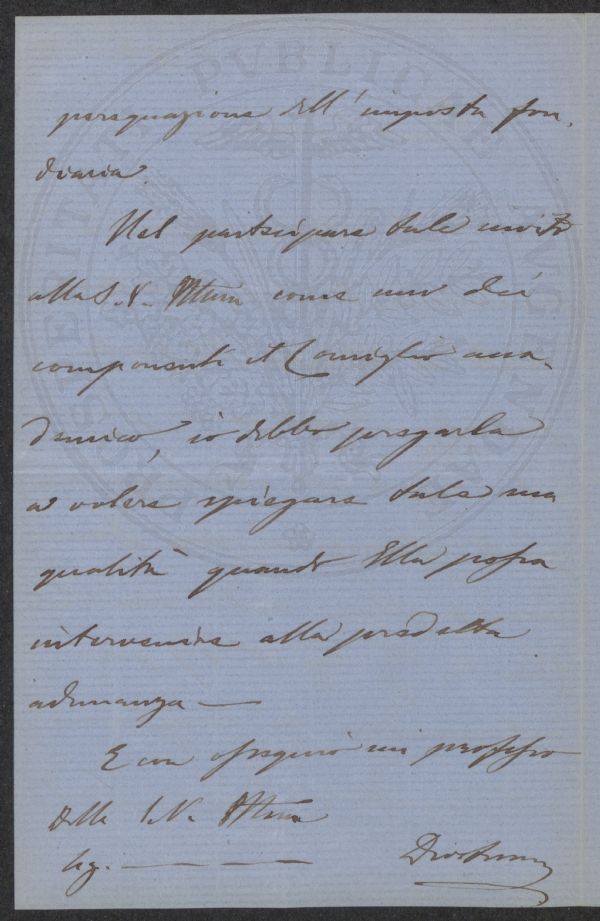 perequazione dell'imposta fon,
diaria.
Nel partecipare tale invito
alla S. V. Ill.ma come uno dei
componenti il Consiglio acca,
demico, io debbo pregarla
a volere spiegare tale sua
qualità quando Ella possa
intervenire alla predetta
adunanza —
E con ossequio mi professo
della S. V. Ill.ma